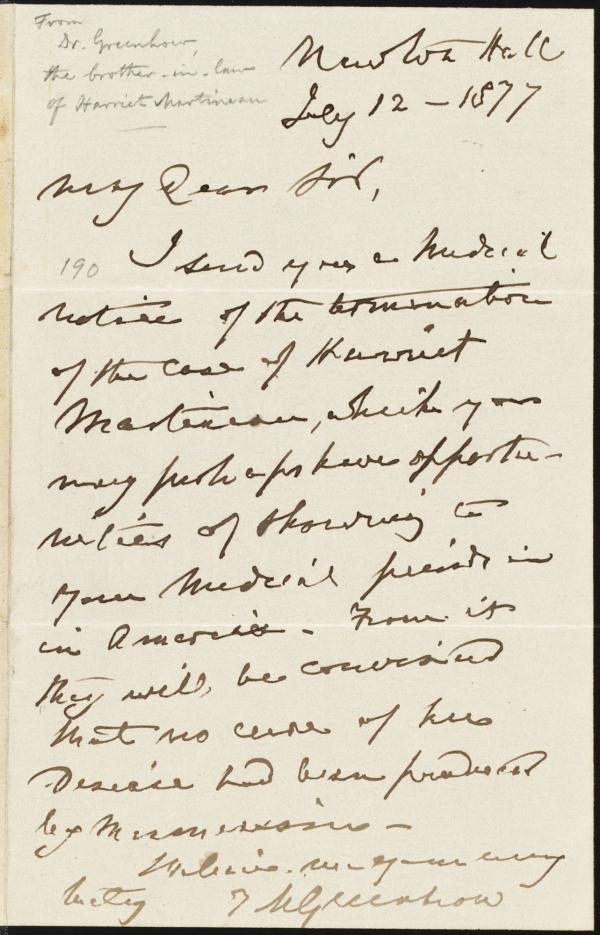 From
Dr. Greenhow,
the brother-in-law
of Harriet Martineau
Newton Hall
July 12 – 1877
My Dear Sir,
190
I send you a Medical
notice of the termination
of the case of Harriet
Martineau, which you
may perhaps have opportu-
nities of showing to
your Medical friends in
in America – From it
they will, be convinced
that no cure of her
Disease had been produced
by Mesmerism –
Believe me yours very
truly T M Greenhow